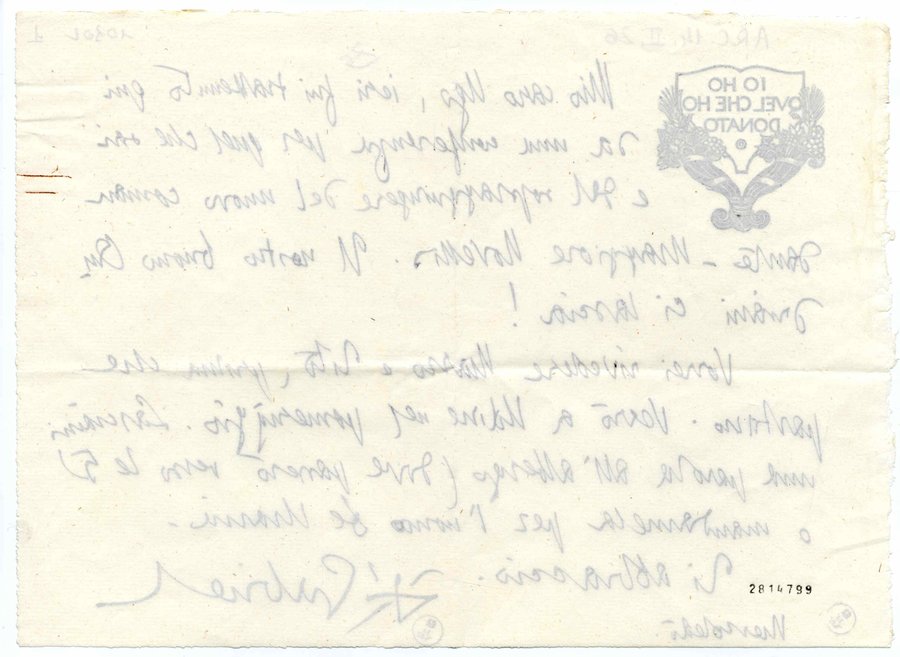 ARC 14 II, 26
IO HO
QVEL CHE HO
DONATO
Mio caro Ugo, ieri fui trattenuto qui
da una conferenza per quel che
e del sopraggiungere del nuovo coman
dante – Maggiore. Il nostro buono
ci lascia!
Vorrei rivedere Marco e Tito, prima che
partano. Verrò a Udine nel pomeriggio. Lasciami
una parola all'albergo (dove passerò verso le 5)
o mandamela per l'uomo
Ti abbraccio.
Gabriel
2814799
Mercoledì.